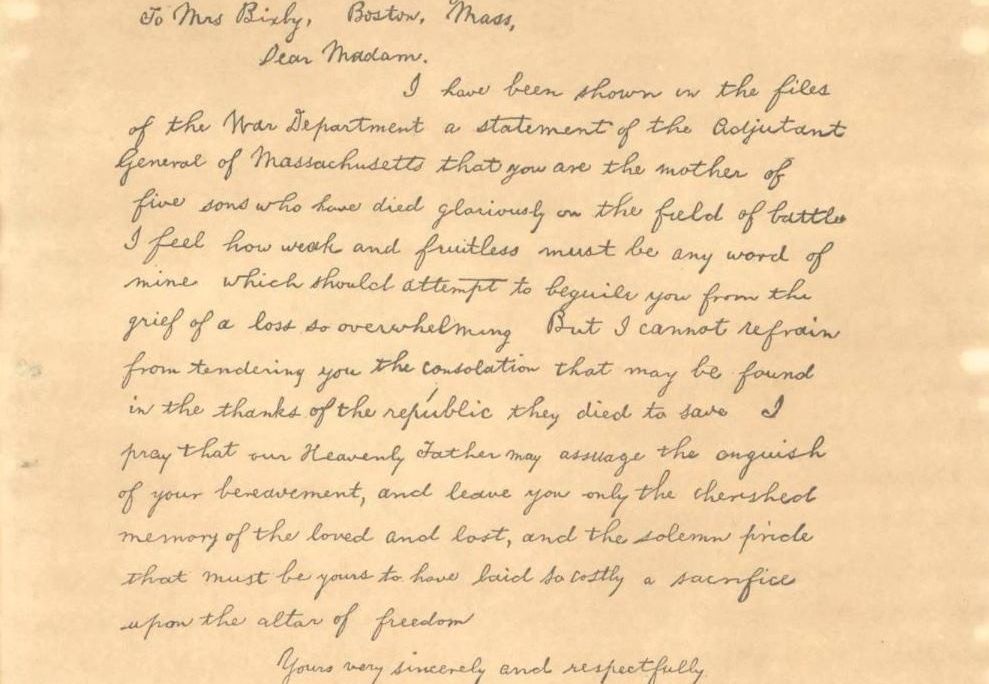 To Mrs Bixby, Boston, Mass,
Dear Madam.
I have been shown in the files
of the War Department a statement of the Adjutant
General of Massachusetts that you are the mother of
five sons who have died gloriously on the field of battle
I feel how weak and fruitless must be any word of
mine which should attempt to beguile you from the
grief of a loss so overwhelming But I cannot refrain
from tendering you the consolation that may be found
in the thanks of the republic they died to save I
pray that our Heavenly Father may assuage the anguish
of your bereavement, and leave you only the cherished
memory of the loved and lost, and the solemn pride
that must be yours to have laid so costly a sacrifice
upon the altar of freedom
Yours very sincerely and respectfully